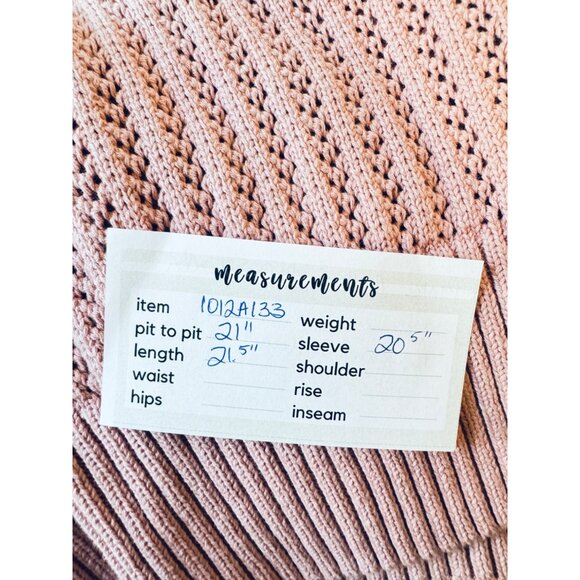 measurements
item 1012A133
pit to pit 21"
length 21.5"
waist
hips
weight
sleeve 20 5"
shoulder
rise
inseam